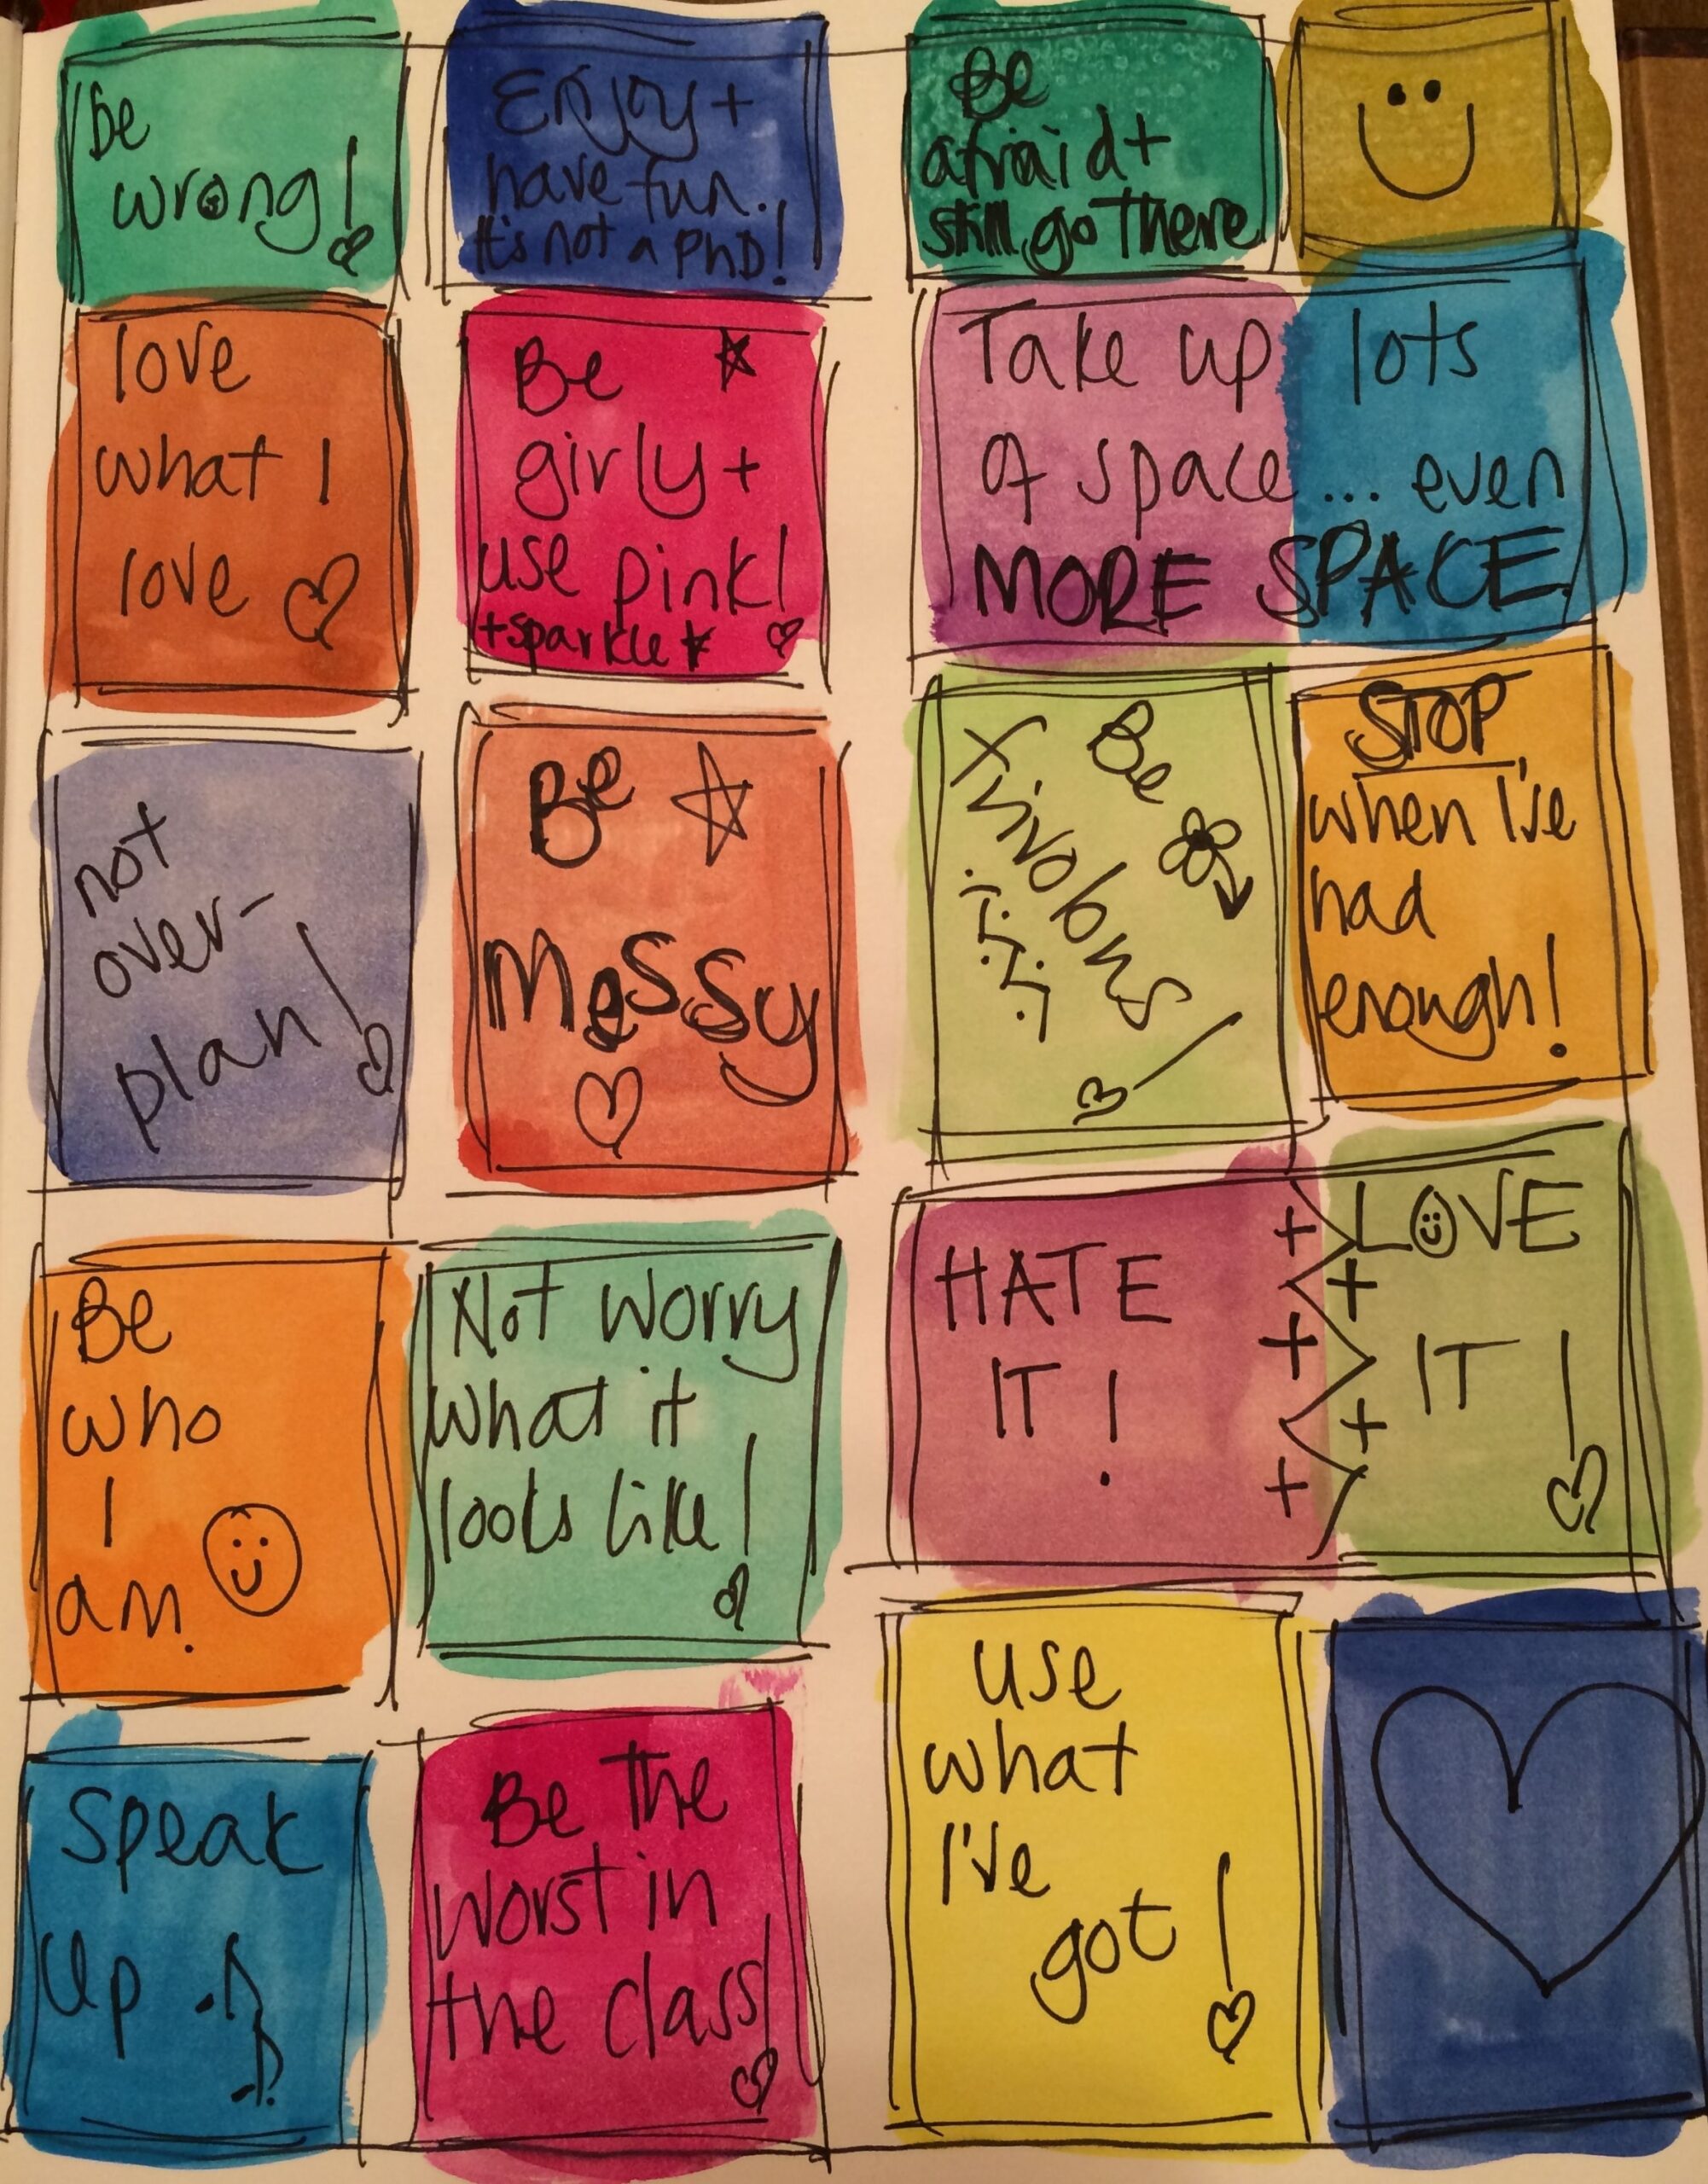 Be
wrong!
Enjoy +
have fun.
It's not a PhD!
Be
afraid +
still go there
love
what I
love
Be
girly +
use pink!
+ sparkle
Take up lots
of space... even
MORE SPACE
not
over-
plan!
Be
Messy
Be
frivolous
STOP
when I've
had
enough!
Be
who
I
am.
Not worry
what it
looks like!
HATE
IT!
LOVE
IT!
Speak
up
Be the
worst in
the class!
use
what
I've
got!